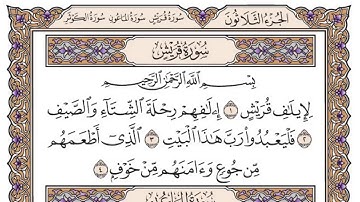 الجزء الثلاثون
سورة قريش سورة الماعون سورة الكوثر
سورة قريش
بِسْمِ ٱللَّهِ ٱلرَّحْمَٰنِ ٱلرَّحِيمِ
لِإِيلَٰفِ قُرَيْشٍ ١ إِۦلَٰفِهِمْ رِحْلَةَ ٱلشِّتَآءِ وَٱلصَّيْفِ
٢ فَلْيَعْبُدُوا۟ رَبَّ هَٰذَا ٱلْبَيْتِ ٣ ٱلَّذِىٓ أَطْعَمَهُم
مِّن جُوعٍ وَءَامَنَهُم مِّنْ خَوْفٍۭ ٤